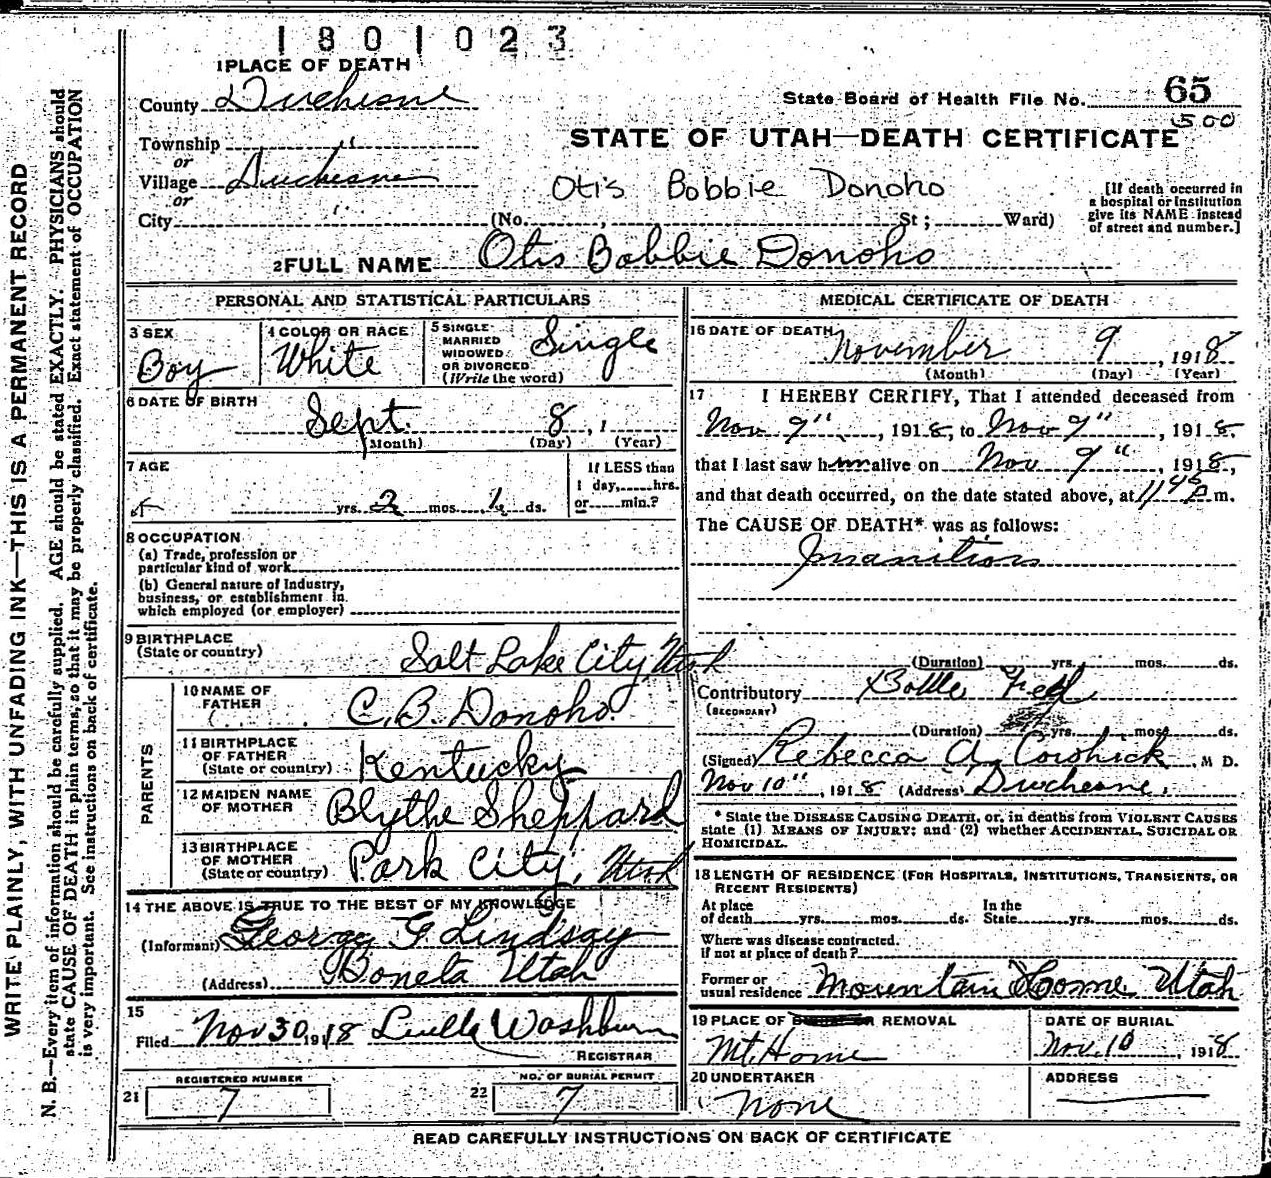 1801023
1 PLACE OF DEATH
County Duchesne
State Board of Health File No. 65
500
STATE OF UTAH—DEATH CERTIFICATE
Township "
or
Village Duchesne
or
City
Otis Bobbie Donoho
(No. , St ; Ward)
[If death occurred in
a hospital or institution
give its NAME instead
of street and number.]
2 FULL NAME Otis Bobbie Donoho
PERSONAL AND STATISTICAL PARTICULARS
3 SEX
Boy
4 COLOR OR RACE
White
5 SINGLE
MARRIED
WIDOWED
OR DIVORCED
(Write the word)
Single
6 DATE OF BIRTH
Sept. 8, 1
(Month) (Day) (Year)
7 AGE
yrs. 2 mos. ds.
If LESS than
1 day, hrs.
or min.?
8 OCCUPATION
(a) Trade, profession or
particular kind of work
(b) General nature of Industry,
business, or establishment in
which employed (or employer)
9 BIRTHPLACE
(State or country)
Salt Lake City, Utah
PARENTS
10 NAME OF
FATHER
C. B. Donoho
11 BIRTHPLACE
OF FATHER
(State or country)
Kentucky
12 MAIDEN NAME
OF MOTHER
Blythe Sheppard
13 BIRTHPLACE
OF MOTHER
(State or country)
Park City, Utah
14 THE ABOVE IS TRUE TO THE BEST OF MY KNOWLEDGE
(Informant) George F Lindsay
(Address) Boneta Utah
15
Filed Nov 30 1918 Luella Washburn
REGISTRAR
REGISTERED NUMBER
21 7
NO. OF BURIAL PERMIT
22 7
MEDICAL CERTIFICATE OF DEATH
16 DATE OF DEATH
November 9, 1918
(Month) (Day) (Year)
17 I HEREBY CERTIFY, That I attended deceased from
Nov 9", 1918, to Nov 9", 1918,
that I last saw him alive on Nov 9", 1918,
and that death occurred, on the date stated above, at 1145 p m.
The CAUSE OF DEATH* was as follows:
Inanition
(Duration) yrs. mos. ds.
Contributory Bottle Fed
(SECONDARY)
(Duration) yrs. mos. ds.
(Signed) Rebecca A. Cowhick, M D.
Nov 10", 1918 (Address) Duchesne.
* State the DISEASE CAUSING DEATH, or, in deaths from VIOLENT CAUSES
state (1) MEANS OF INJURY; and (2) whether ACCIDENTAL, SUICIDAL OR
HOMICIDAL.
18 LENGTH OF RESIDENCE (FOR HOSPITALS, INSTITUTIONS, TRANSIENTS, OR
RECENT RESIDENTS)
At place
of death yrs. mos. ds.
In the
State yrs. mos. ds.
Where was disease contracted.
if not at place of death?
Former or
usual residence Mountain Home Utah
19 PLACE OF BURIAL OR REMOVAL
Mt. Home
DATE OF BURIAL
Nov. 10, 1918
20 UNDERTAKER
None
ADDRESS
READ CAREFULLY INSTRUCTIONS ON BACK OF CERTIFICATE
WRITE PLAINLY, WITH UNFADING INK—THIS IS A PERMANENT RECORD
N. B.—Every item of information should be carefully supplied. AGE should be stated EXACTLY. PHYSICIANS should
state CAUSE OF DEATH in plain terms, so that it may be properly classified. Exact statement of OCCUPATION
is very important. See instructions on back of certificate.